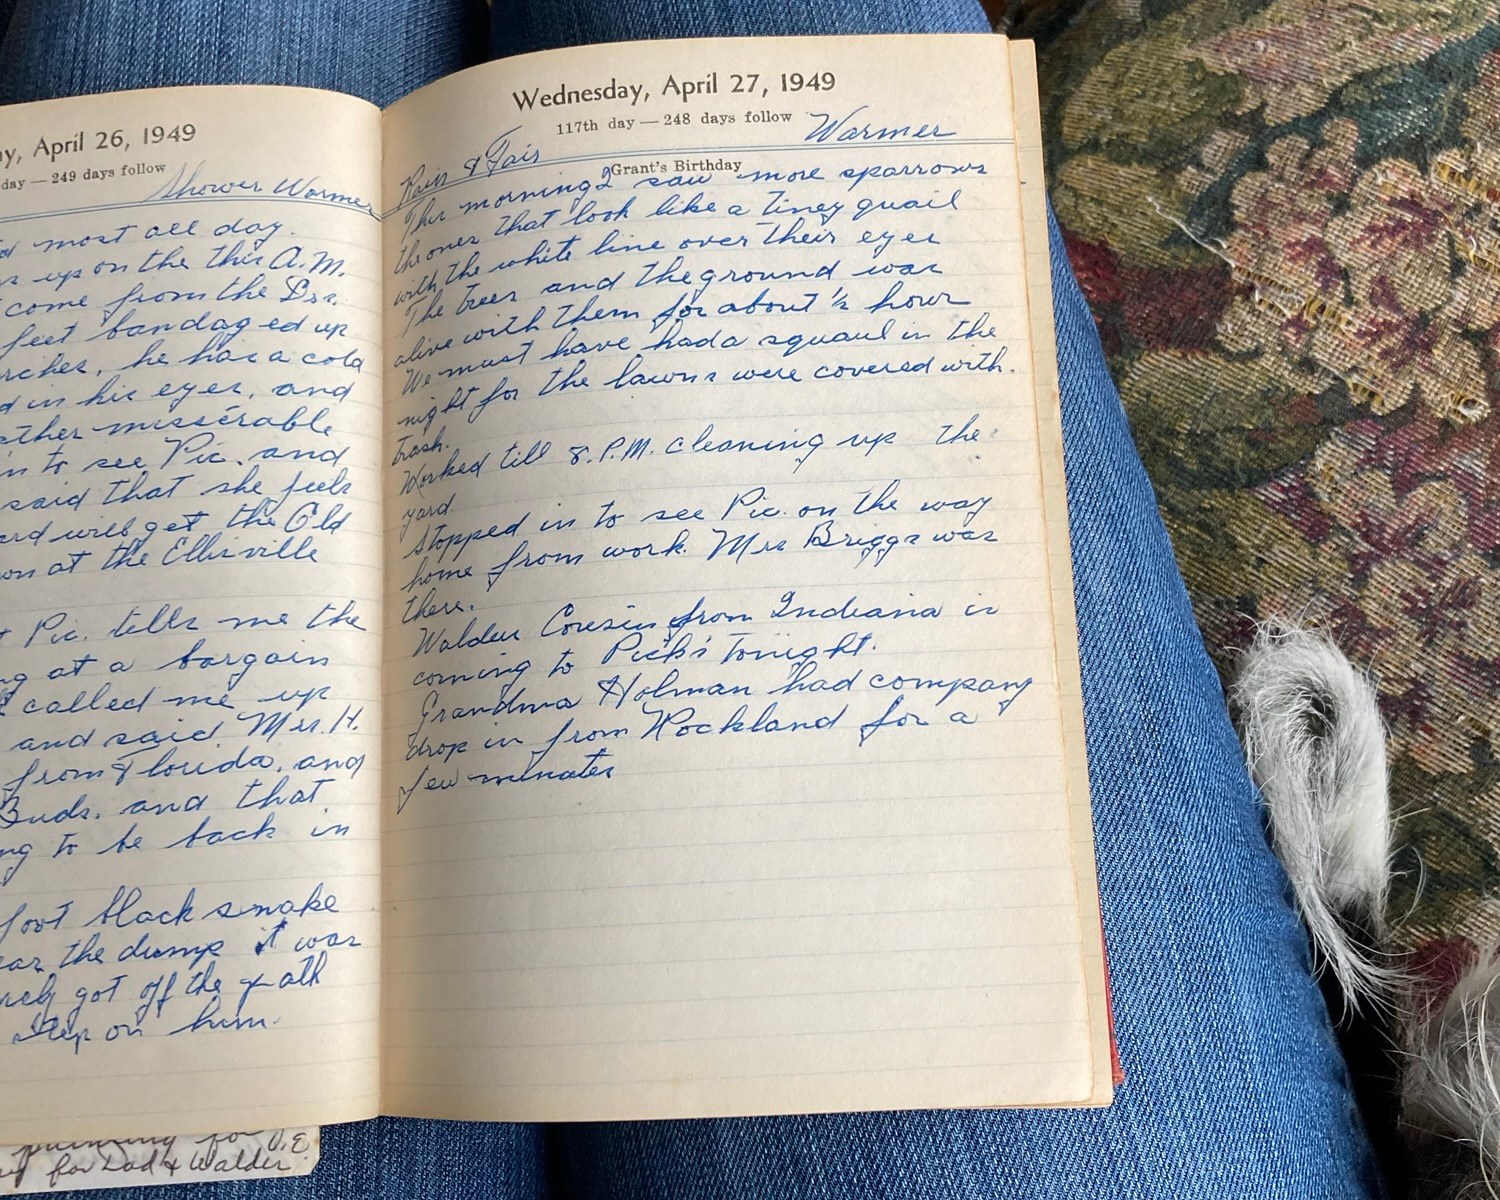 April 26, 1949
day — 249 days follow
Shower Warmer
most all day.
up on the this A.M.
come from the Drs.
feet bandaged up
he has a cold
in his eyes, and
misserable
in to see Pic. and
said that she feels
will get the Old
at the Ellisville
Pic. tells me the
at a bargain
called me up
and said Mrs. H.
from Florida, and
Buds. and that
to be back in
foot black snake
the dump it was
got off the path
step on him.
for V.E.
for Dad & Walder
Wednesday, April 27, 1949
117th day — 248 days follow
Rain & Fair Warmer
Grant's Birthday
This morning I saw more sparrows
the ones that look like a tiney quail
with the white line over their eyes
The trees and the ground was
alive with them for about ½ hour
We must have had a squaul in the
night for the lawns were covered with
trash.
Worked till 8. P.M. cleaning up the
yard.
Stopped in to see Pic. on the way
home from work. Mrs Briggs was
there.
Walder Cousin from Indiana is
coming to Pick's tonight.
Grandma Holman had company
drop in from Rockland for a
few minates